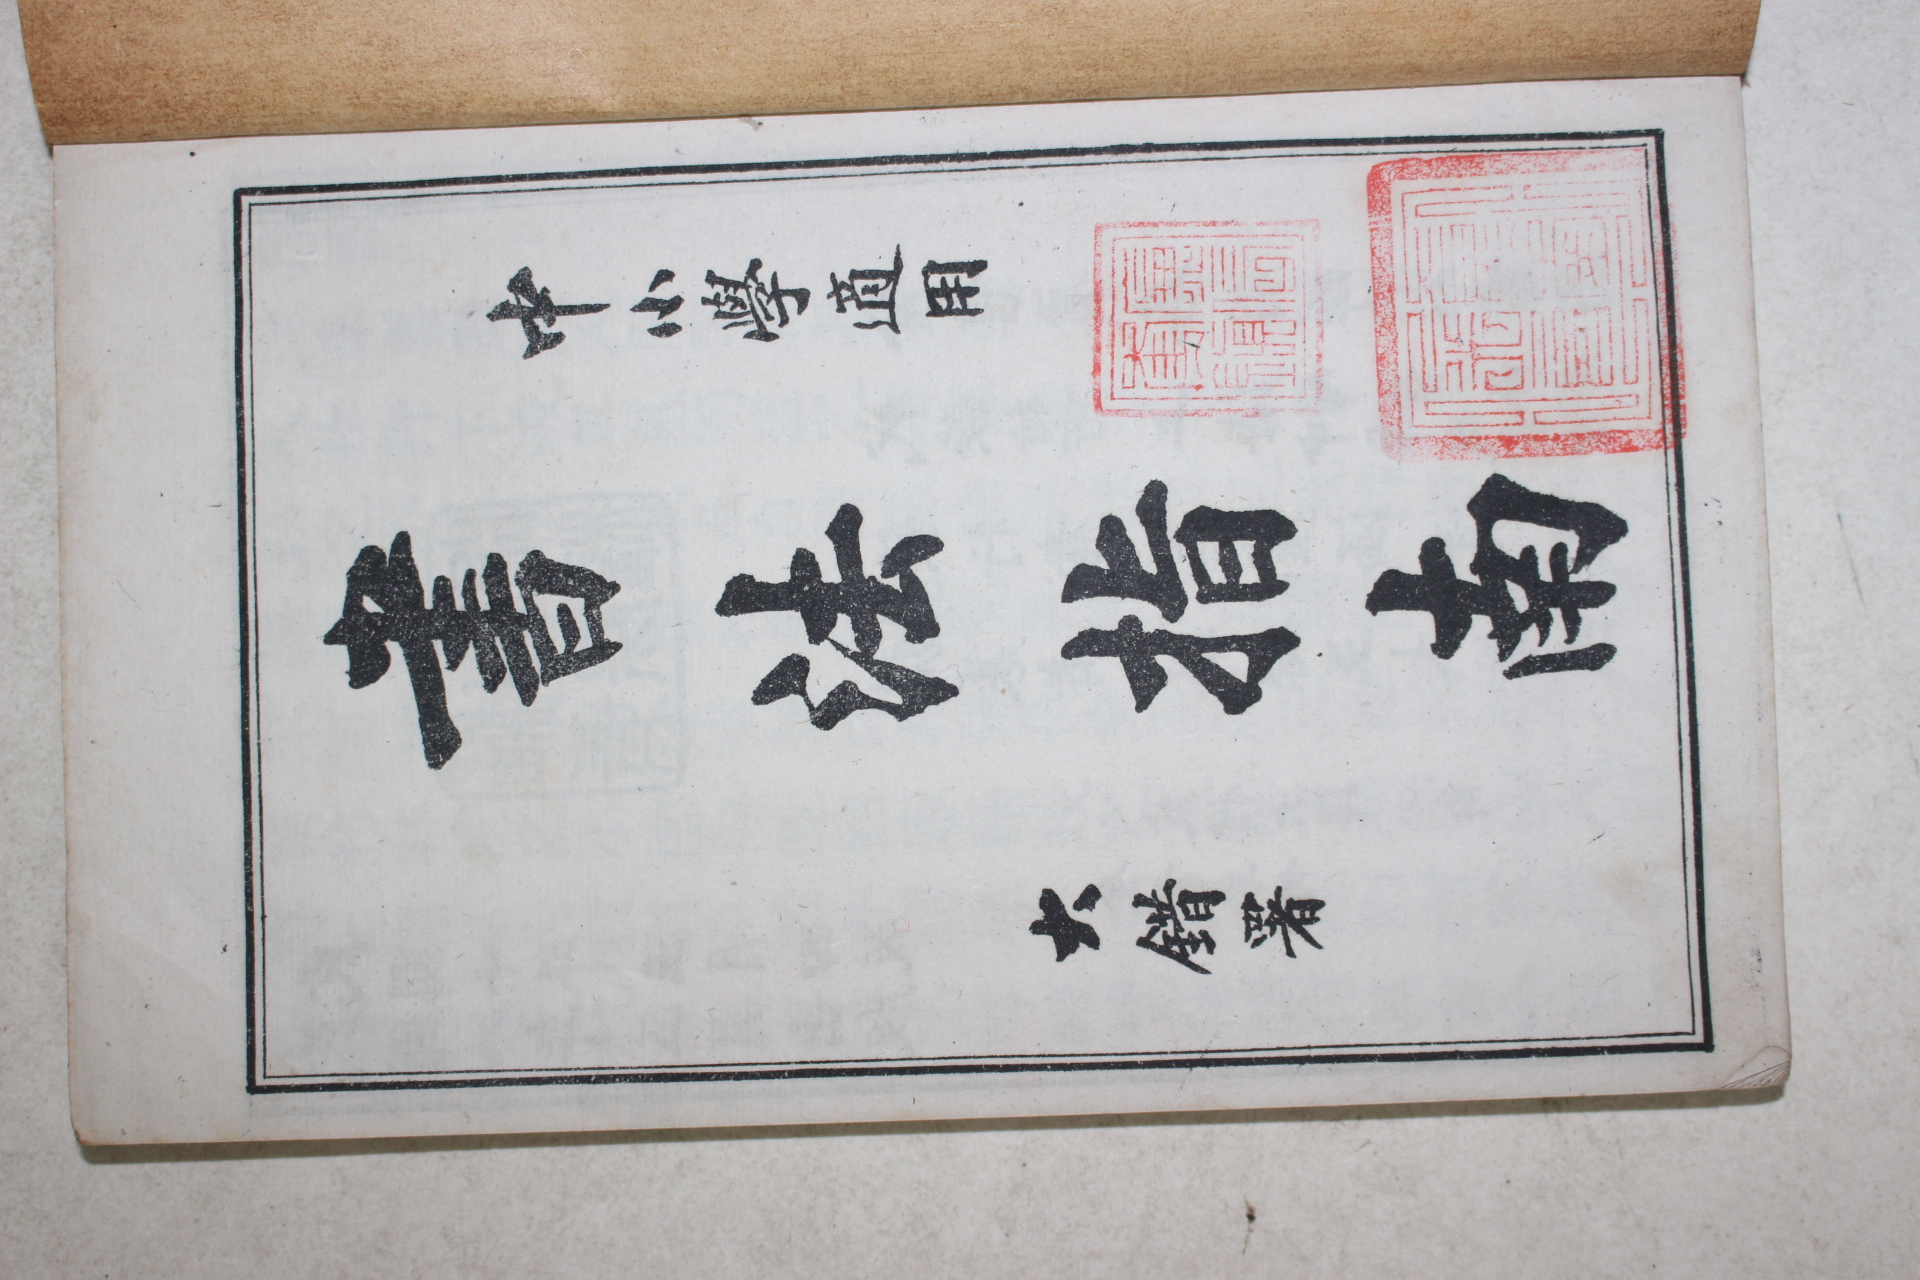 中小學適用
書法指南
大錯著